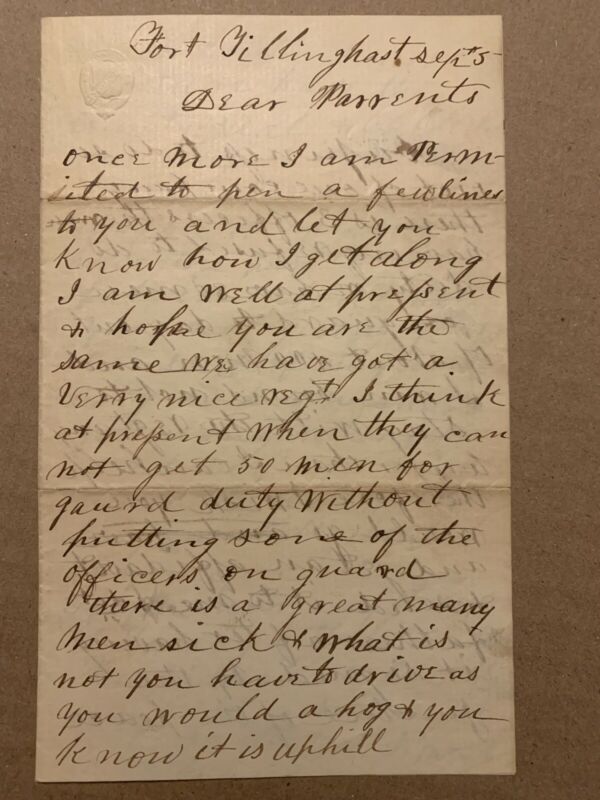 Fort Tillinghast Sept 5
Dear Parrents
once more I am Perm-
ited to pen a few lines
to you and let you
Know how I get along
I am well at present
& hope you are the
same we have got a
verry nice regt I think
at present when they can
not get 50 men for
gaurd duty without
putting some of the
officers on guard
there is a great many
men sick & what is
not you have to drive as
you would a hog & you
Know it is uphill